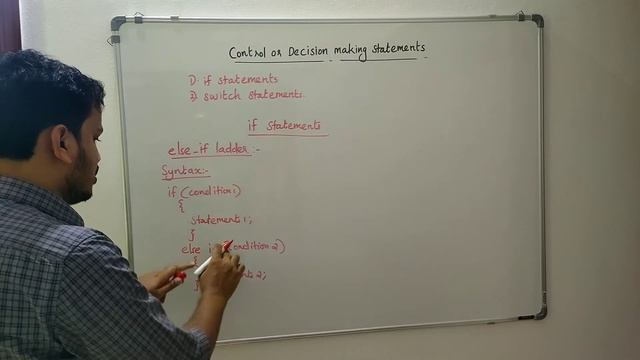 Control or Decision making statements
1) if statements
2) switch statements.
if statements
else-if ladder:-
Syntax:-
if (condition1)
{
statement1;
}
else (condition2)
{
2;
}